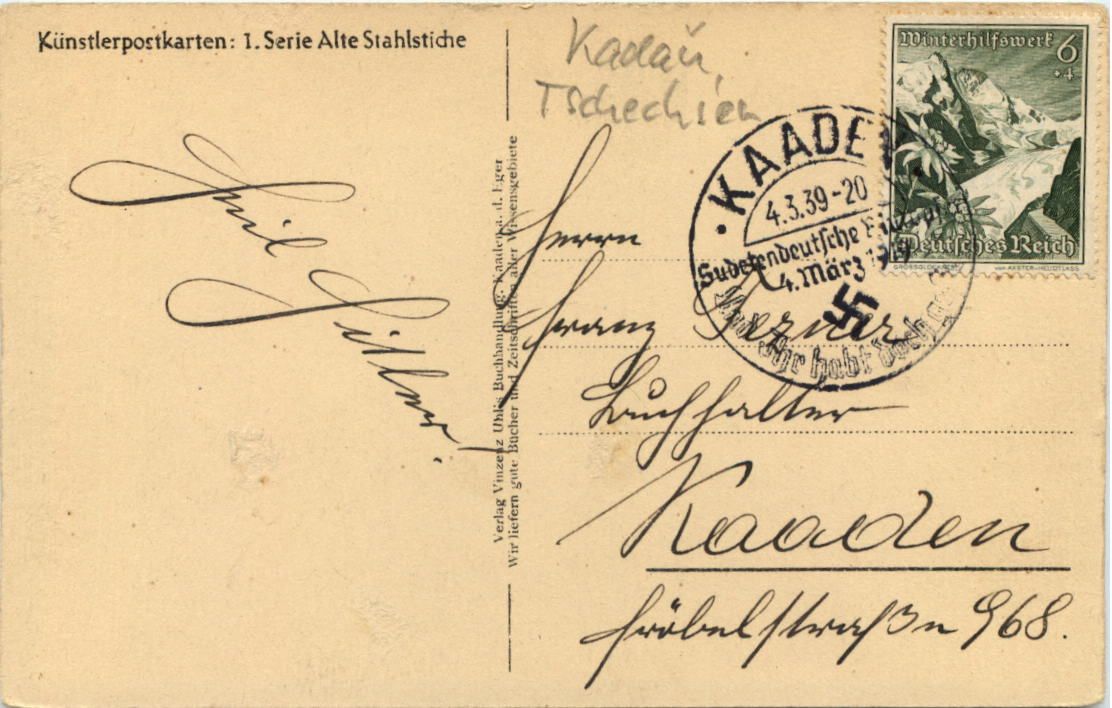 Künstlerpostkarten: 1. Serie Alte Stahlstiche
Kadaň,
Tschechien
Winterhilfswerk 6
+4
Deutsches Reich
GROSSGLOCKNER
VON AXSTER-HEUDTLASS
KAADEN
4.3.39-20
Sudetendeutsche
4. März 1919
Ihr habt doch
Heil Hitler!
Verlag Vinzenz Uhl's Buchhandlung, Kaaden a. d. Eger
Wir liefern gute Bücher und Zeitschriften aller Wissensgebiete
Herrn
Franz
Buchhalter
Kaaden
Fröbelstraße 968.